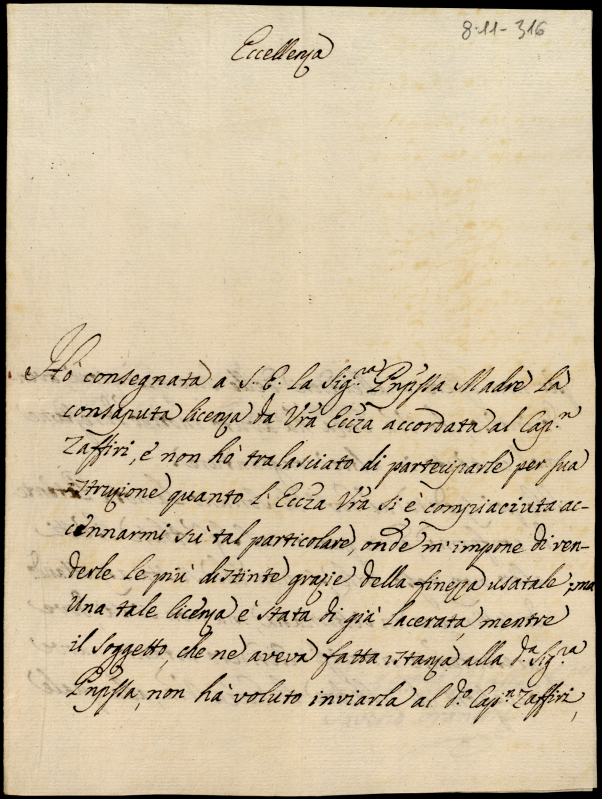 8-11-316
Eccellenza
Hò consegnata a S. E. la Sig.ra Pnpssa Madre la
consaputa licenza da Vra Eccza accordata al Cap.n
Zaffiri, e non hò tralasciato di parteciparle per sua
istruzione quanto l'Eccza Vra si è compiaciuta ac-
cennarmi sù tal particolare, onde m'impone di ren-
derle le più distinte grazie della finezza usatale; ma
Una tale licenza è stata di già lacerata, mentre
il soggetto, che nè aveva fatta istanza alla d.a Sig.ra
Pnpssa, non hà voluto inviarla al d.o Cap.n Zaffiri,